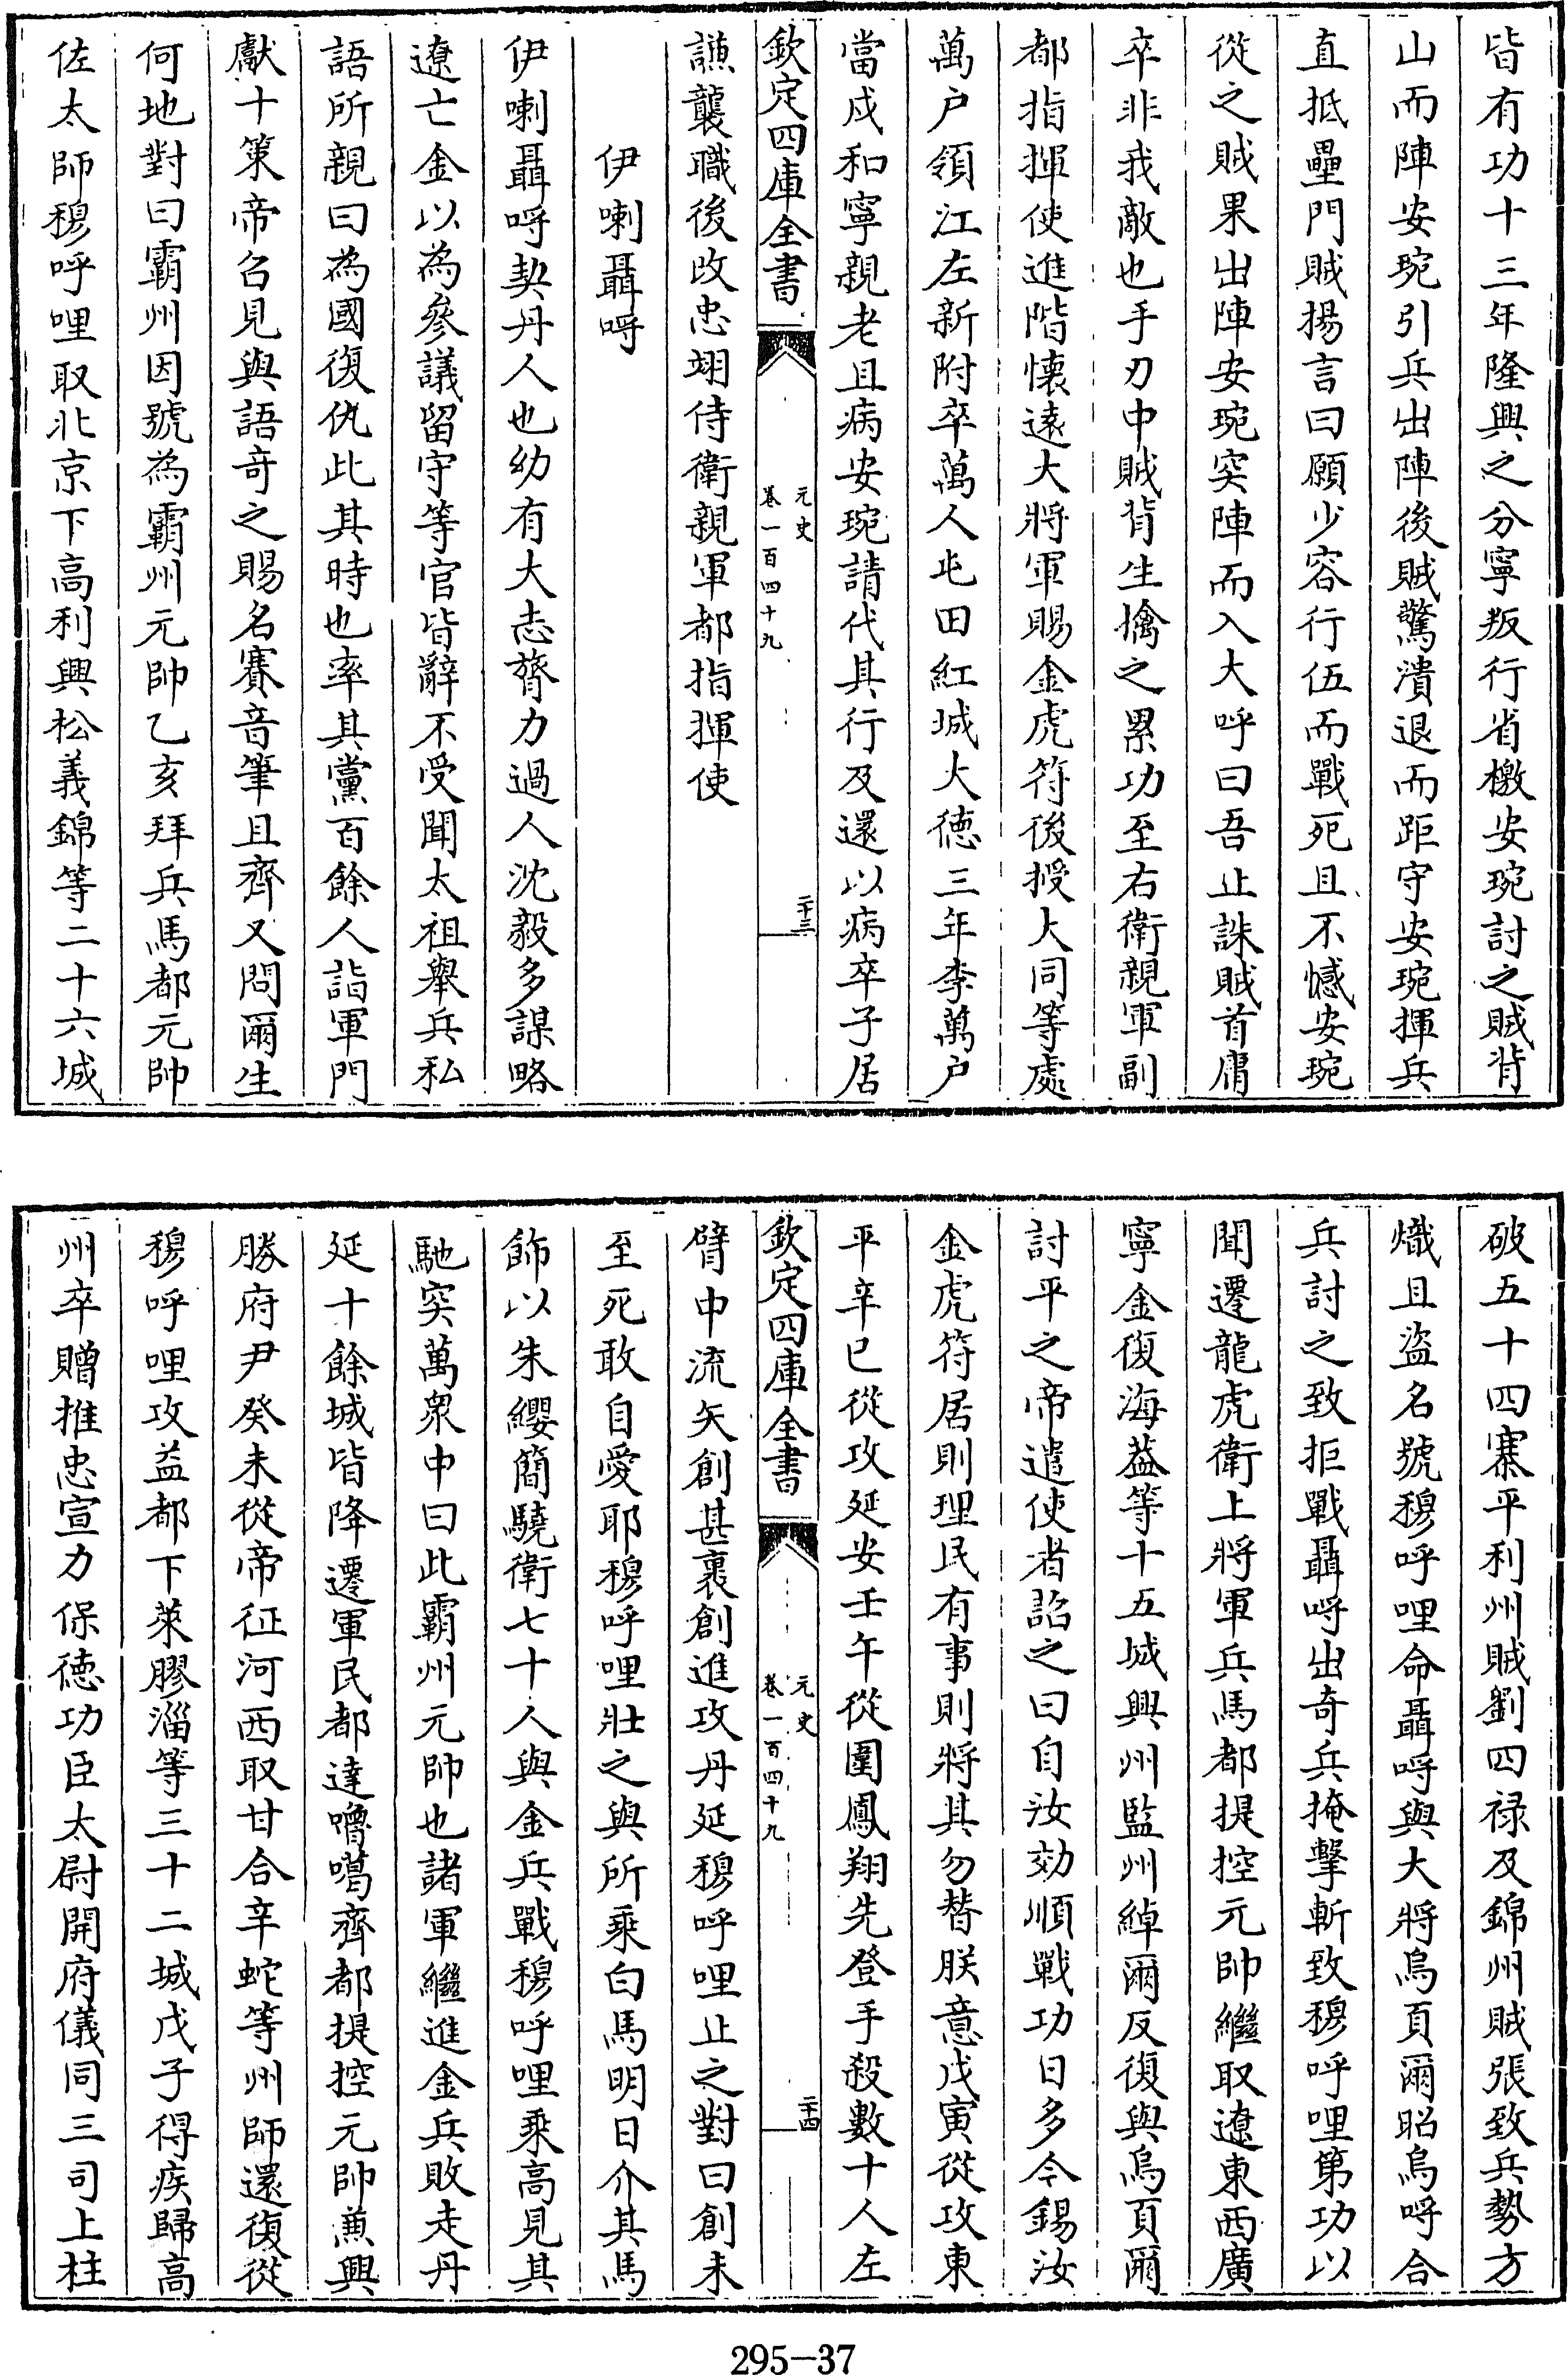 皆有功十三年隆興之分寧叛行省檄安琬討之賊背
山而陣安琬引兵出陣後賊驚潰退而距守安琬揮兵
直抵壘門賊揚言曰願少容行伍而戰死且不憾安琬
從之賊果出陣安琬突陣而入大呼曰吾止誅賊首庸
卒非我敵也手刃中賊背生擒之累功至右衛親軍副
都指揮使進階懷遠大將軍賜金虎符後授大同等處
萬户領江左新附卒萬人屯田紅城大徳三年李萬户
當戍和寧親老且病安琬請代其行及還以病卒子居
欽定四庫全書
元史
卷一百四十九
二十三
謙襲職後改忠翊侍衛親軍都指揮使
伊喇聶呼
伊喇聶呼契丹人也幼有大志膂力過人沈毅多謀略
遼亡金以為參議留守等官皆辭不受聞太祖舉兵私
語所親曰為國復仇此其時也率其黨百餘人詣軍門
獻十策帝召見與語奇之賜名賽音筆且齊又問爾生
何地對曰霸州因號為霸州元帥乙亥拜兵馬都元帥
佐太師穆呼哩取北京下高利興松義錦等二十六城
破五十四寨平利州賊劉四禄及錦州賊張致兵勢方
熾且盜名號穆呼哩命聶呼與大將烏頁爾昭烏呼合
兵討之致拒戰聶呼出奇兵掩擊斬致穆呼哩第功以
聞遷龍虎衛上將軍兵馬都提控元帥繼取遼東西廣
寧金復海葢等十五城興州監州綽爾反復與烏頁爾
討平之帝遣使者詔之曰自汝効順戰功日多今錫汝
金虎符居則理民有事則將其勿替朕意戊寅從攻東
平辛巳從攻延安壬午從圍鳳翔先登手殺數十人左
欽定四庫全書
元史
卷一百四十九
二十四
臂中流矢創甚裹創進攻丹延穆呼哩止之對曰創未
至死敢自愛耶穆呼哩壯之與所乘白馬明日介其馬
飾以朱纓簡驍衛七十人與金兵戰穆呼哩乘高見其
馳突萬衆中曰此霸州元帥也諸軍繼進金兵敗走丹
延十餘城皆降遷軍民都達嚕噶齊都提控元帥兼興
勝府尹癸未從帝征河西取甘合辛蛇等州師還復從
穆呼哩攻益都下萊膠淄等三十二城戊子得疾歸高
州卒贈推忠宣力保徳功臣太尉開府儀同三司上柱
295-37